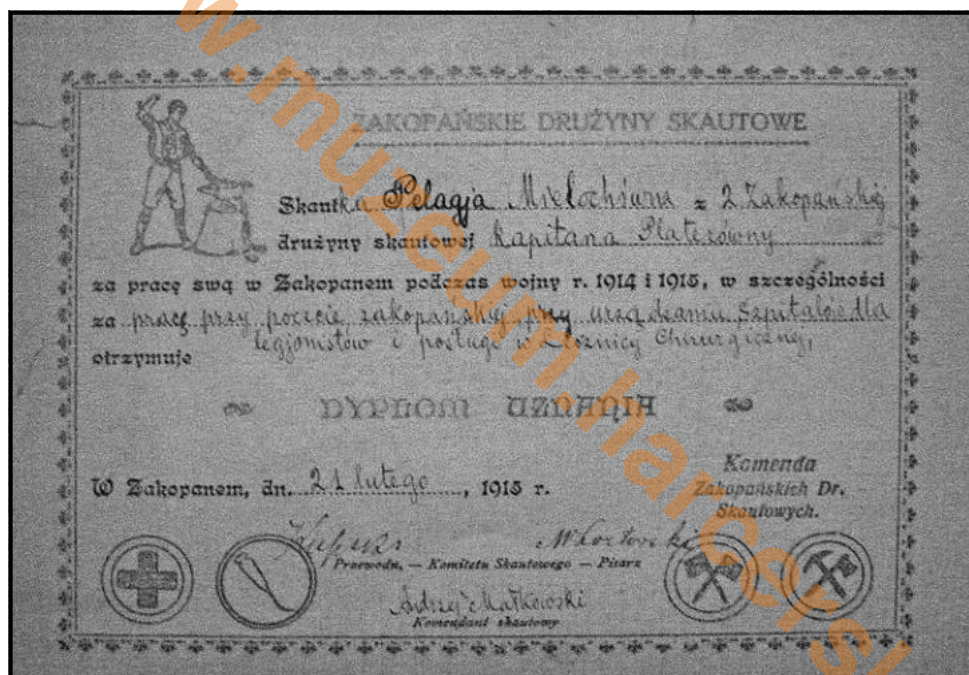 ZAKOPAŃSKIE DRUŻYNY SKAUTOWE
Skautka Pelagja z 2 Zakopańskiej
drużyny skautowej Kapitana Platerówny
za pracę swą w Zakopanem podczas wojny r. 1914 i 1915, w szczególności
za pracę przy poczcie zakopańskiej, przy urządzaniu Szpitalów dla
legjonistów i posługę w Lecznicy Chirurgicznej,
otrzymuje
DYPLOM UZNANIA
W Zakopanem, dn. 21 lutego, 1915 r.
Komenda
Zakopańskich Dr.
Skautowych.
Przewodn. — Komitetu Skautowego — Pisarz
Andrzej Małkowski
Komendant skautowy
w.muzeum.harcers